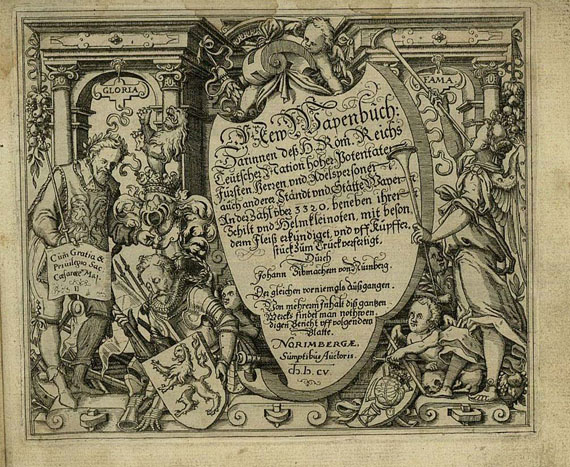 GLORIA
FAMA
New Wapenbuch:
Darinnen deß H. Röm. Reichs
Teutscher Nation hoher Potentaten
Fürsten Herren und Adelspersonen
auch anderer Ständt und Stätte Wapen
An der Zahl über 3320. beneben ihrer
Schilt und Helmkleinoten, mit beson
derm Fleiß erkündiget, und uff Kupffer
stück zum Truck verfertigt,
Durch
Johann Sibmachern von Nürnberg.
Der gleichen vor niemals außgangen.
Von mehrerm Inhalt diß gantzen
Wercks findet man nothwen
digen Bericht uff volgendem
Blatte.
NORIMBERGÆ,
Sumptibus Auctoris.
CV
Cum Gratia &
Privilegio Sac.
Cæsareæ Mai.